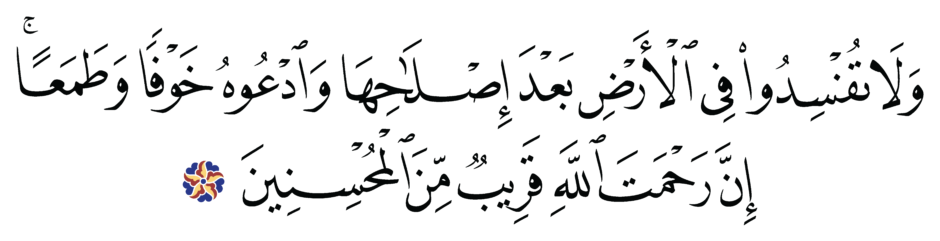 وَلَا تُفْسِدُوا۟ فِى ٱلْأَرْضِ بَعْدَ إِصْلَـٰحِهَا وَٱدْعُوهُ خَوْفًا وَطَمَعًا ۚ
إِنَّ رَحْمَتَ ٱللَّهِ قَرِيبٌ مِّنَ ٱلْمُحْسِنِينَ